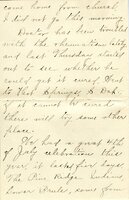 came home from church,
I did not go this morning
Doctor has been troubled
with the rheumatism lately
and last Thursday started
out to see whether he
could get it cured. Went
to Hot Springs S. Dak.
if it cannot be cured
there will try some other
place.
We had a great 4th
of July celebrations this
year it lasted four days
The Pine Ridge Indians,
Lower Brules, some from